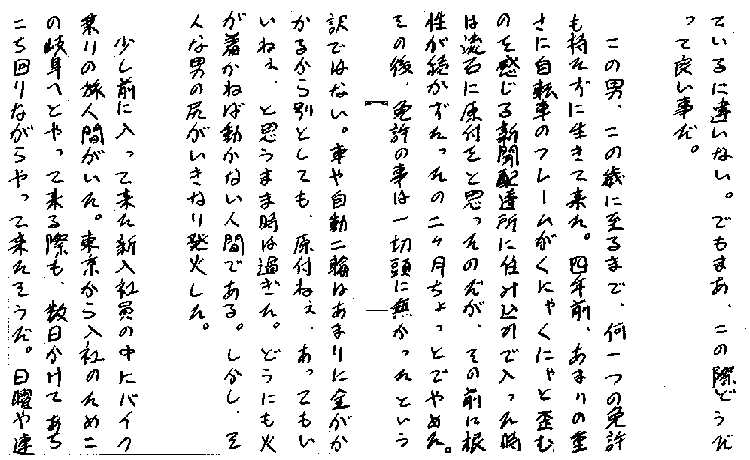 ているに違いない。でもまあ、この際どうだ
って良い事だ。
この男、この歳に至るまで、何一つの免許
も持たずに生きて来た。四年前、あまりの重
さに自転車のフレームがくにゃくにゃと歪む
のを感じる新聞配達所に住み込みで入った時
は流石に原付をと思ったのだが、その前に根
性が続かずたったの二ヶ月ちょっとでやめた。
その後、免許の事は一切頭に無かったという
訳ではない。車や自動二輪はあまりに金がか
かるから別としても、原付ねえ、あってもい
いねえ、と思うまま時は過ぎた。どうにも火
が着かねば動かない人間である。しかし、そ
んな男の尻がいきなり発火した。
少し前に入って来た新入社員の中にバイク
乗りの旅人間がいた。東京から入社のためこ
の岐阜へとやって来る際も、数日かけてあち
こち回りながらやって来たそうだ。日曜や連